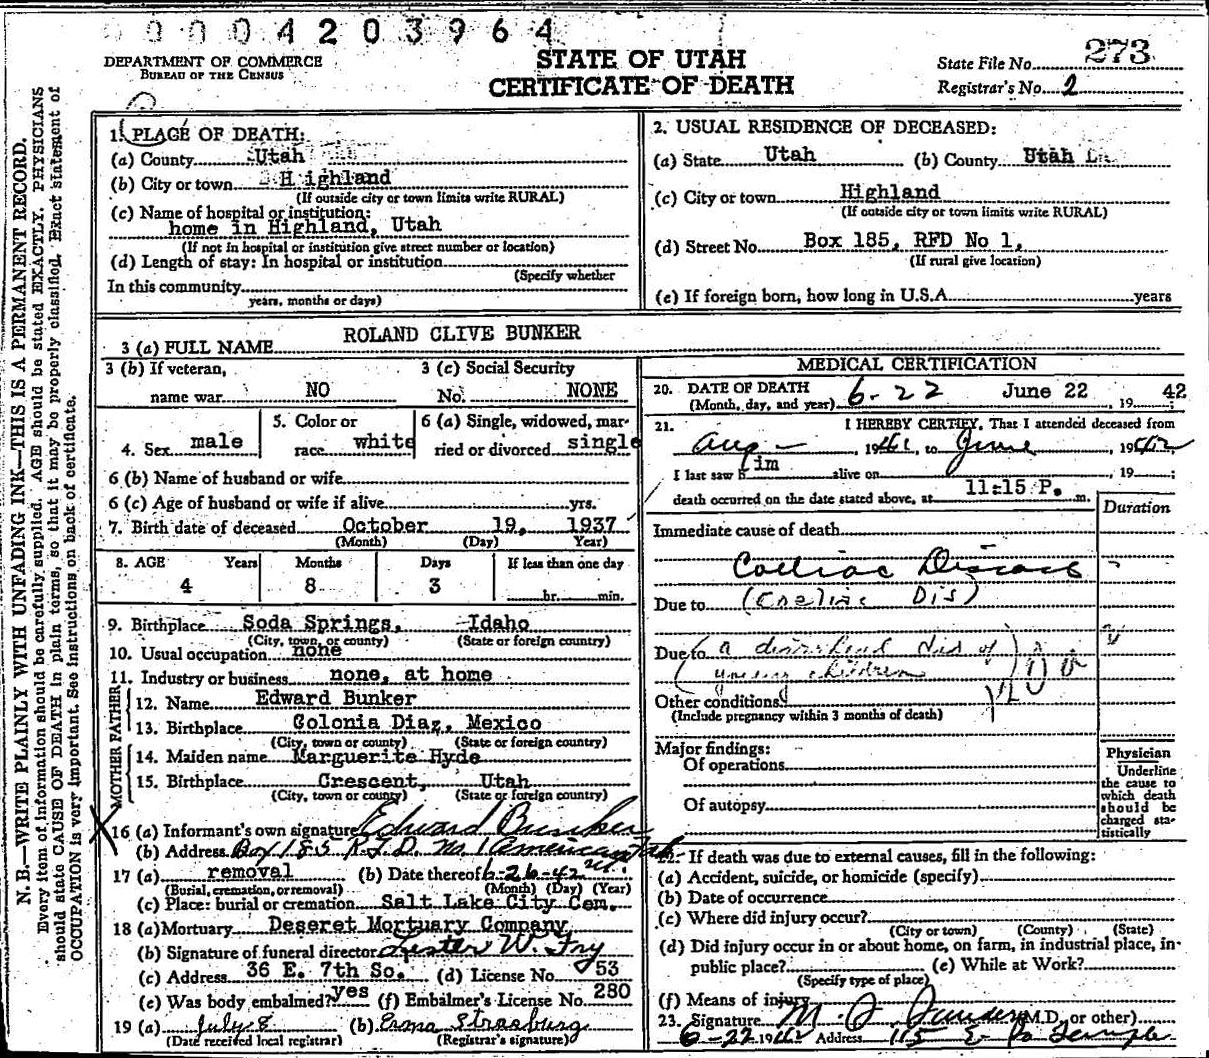 00004203964
DEPARTMENT OF COMMERCE
BUREAU OF THE CENSUS
STATE OF UTAH
CERTIFICATE OF DEATH
State File No. 273
Registrar's No. 2
N. B.—WRITE PLAINLY WITH UNFADING INK—THIS IS A PERMANENT RECORD.
Every item of information should be carefully supplied. AGE should be stated EXACTLY. PHYSICIANS
should state CAUSE OF DEATH in plain terms, so that it may be properly classified. Exact statement of
OCCUPATION is very important. See instructions on back of certificate.
1. PLACE OF DEATH:
(a) County Utah
(b) City or town Highland
(If outside city or town limits write RURAL)
(c) Name of hospital or institution:
home in Highland, Utah
(If not in hospital or institution give street number or location)
(d) Length of stay: In hospital or institution
(Specify whether
In this community
years, months or days)
2. USUAL RESIDENCE OF DECEASED:
(a) State Utah (b) County Utah
(c) City or town Highland
(If outside city or town limits write RURAL)
(d) Street No. Box 185, RFD No 1,
(If rural give location)
(e) If foreign born, how long in U.S.A. years
3 (a) FULL NAME ROLAND CLIVE BUNKER
3 (b) If veteran, name war NO
3 (c) Social Security No. NONE
4. Sex male
5. Color or race white
6 (a) Single, widowed, married or divorced single
6 (b) Name of husband or wife
6 (c) Age of husband or wife if alive yrs.
7. Birth date of deceased October 19, 1937
(Month) (Day) Year)
8. AGE Years Months Days If less than one day
4 8 3 hr. min.
9. Birthplace Soda Springs, Idaho
(City, town, or county) (State or foreign country)
10. Usual occupation none
11. Industry or business none, at home
FATHER
12. Name Edward Bunker
13. Birthplace Colonia Diaz, Mexico
(City, town or county) (State or foreign country)
MOTHER
14. Maiden name Marguerite Hyde
15. Birthplace Crescent, Utah
(City, town or county) (State or foreign country)
X 16 (a) Informant's own signature Edward Bunker
(b) Address Box 185 R.F.D. No. 1 American
17 (a) removal (b) Date thereof 6-26-42
(Burial, cremation, or removal) (Month) (Day) (Year)
(c) Place: burial or cremation Salt Lake City Cem.
18 (a) Mortuary Deseret Mortuary Company
(b) Signature of funeral director Lester W. Fry
(c) Address 36 E. 7th So. (d) License No. 53
(e) Was body embalmed? yes (f) Embalmer's License No. 280
19 (a) July 8 (b) Erma Strasburg
(Date received local registrar) (Registrar's signature)
MEDICAL CERTIFICATION
20. DATE OF DEATH 6-22 June 22 42
(Month, day, and year) , 19
21. I HEREBY CERTIFY, That I attended deceased from
Aug - , 1941, to June , 1942
I last saw him alive on , 19 ;
death occurred on the date stated above, at 11:15 P. m.
Duration
Immediate cause of death
Coeliac Disease
Due to (Coeliac Dis)
Due to (a diarrheal dis of
young children)
Other conditions
(Include pregnancy within 3 months of death)
Major findings:
Of operations
Of autopsy
Physician
Underline
the cause to
which death
should be
charged sta-
tistically
22. If death was due to external causes, fill in the following:
(a) Accident, suicide, or homicide (specify)
(b) Date of occurrence
(c) Where did injury occur?
(City or town) (County) (State)
(d) Did injury occur in or about home, on farm, in industrial place, in-
public place? (e) While at Work?
(Specify type of place)
(f) Means of injury
23. Signature M. J. (M.D. or other)
6-22 1942 Address 115 E So Temple